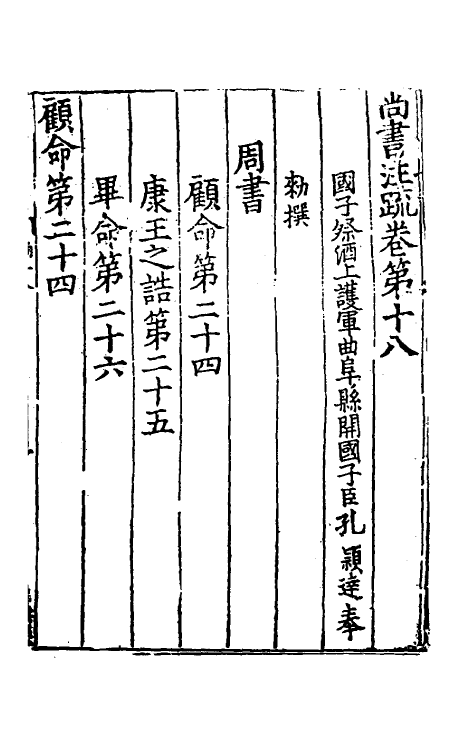 尚書注疏卷第十八
國子祭酒上護軍曲阜縣開國子臣孔穎達奉
勑撰
周書
顧命第二十四
康王之誥第二十五
畢命第二十六
顧命第二十四